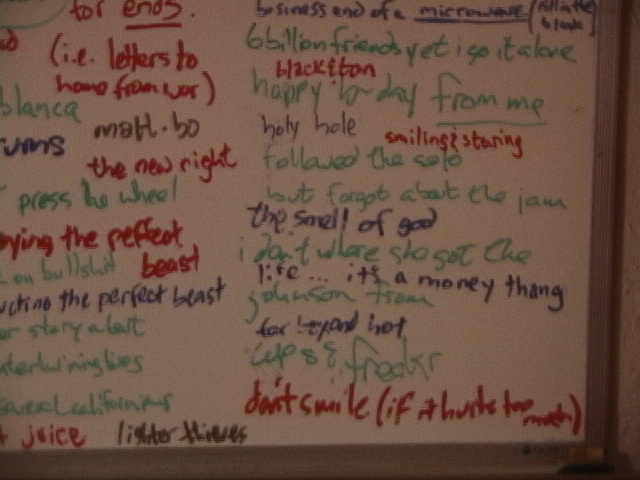 for ends.
(i.e. letters to
home from war)
blanca
matt.bo
the new right
press the wheel
the perfect
beast
on bullshit
the perfect beast
story about
several californians
juice
lighter thieves
business end of a microwave (fill in the
blank)
6 billion friends yet i go it alone
black & tan
happy b-day from me
holy hole
smiling & staring
followed the solo
but forgot about the jam
the smell of god
i don't where she got the
life... it's a money thang
johnson from
far beyond hot
cups & freckr
don't smile (if it hurts too
much)